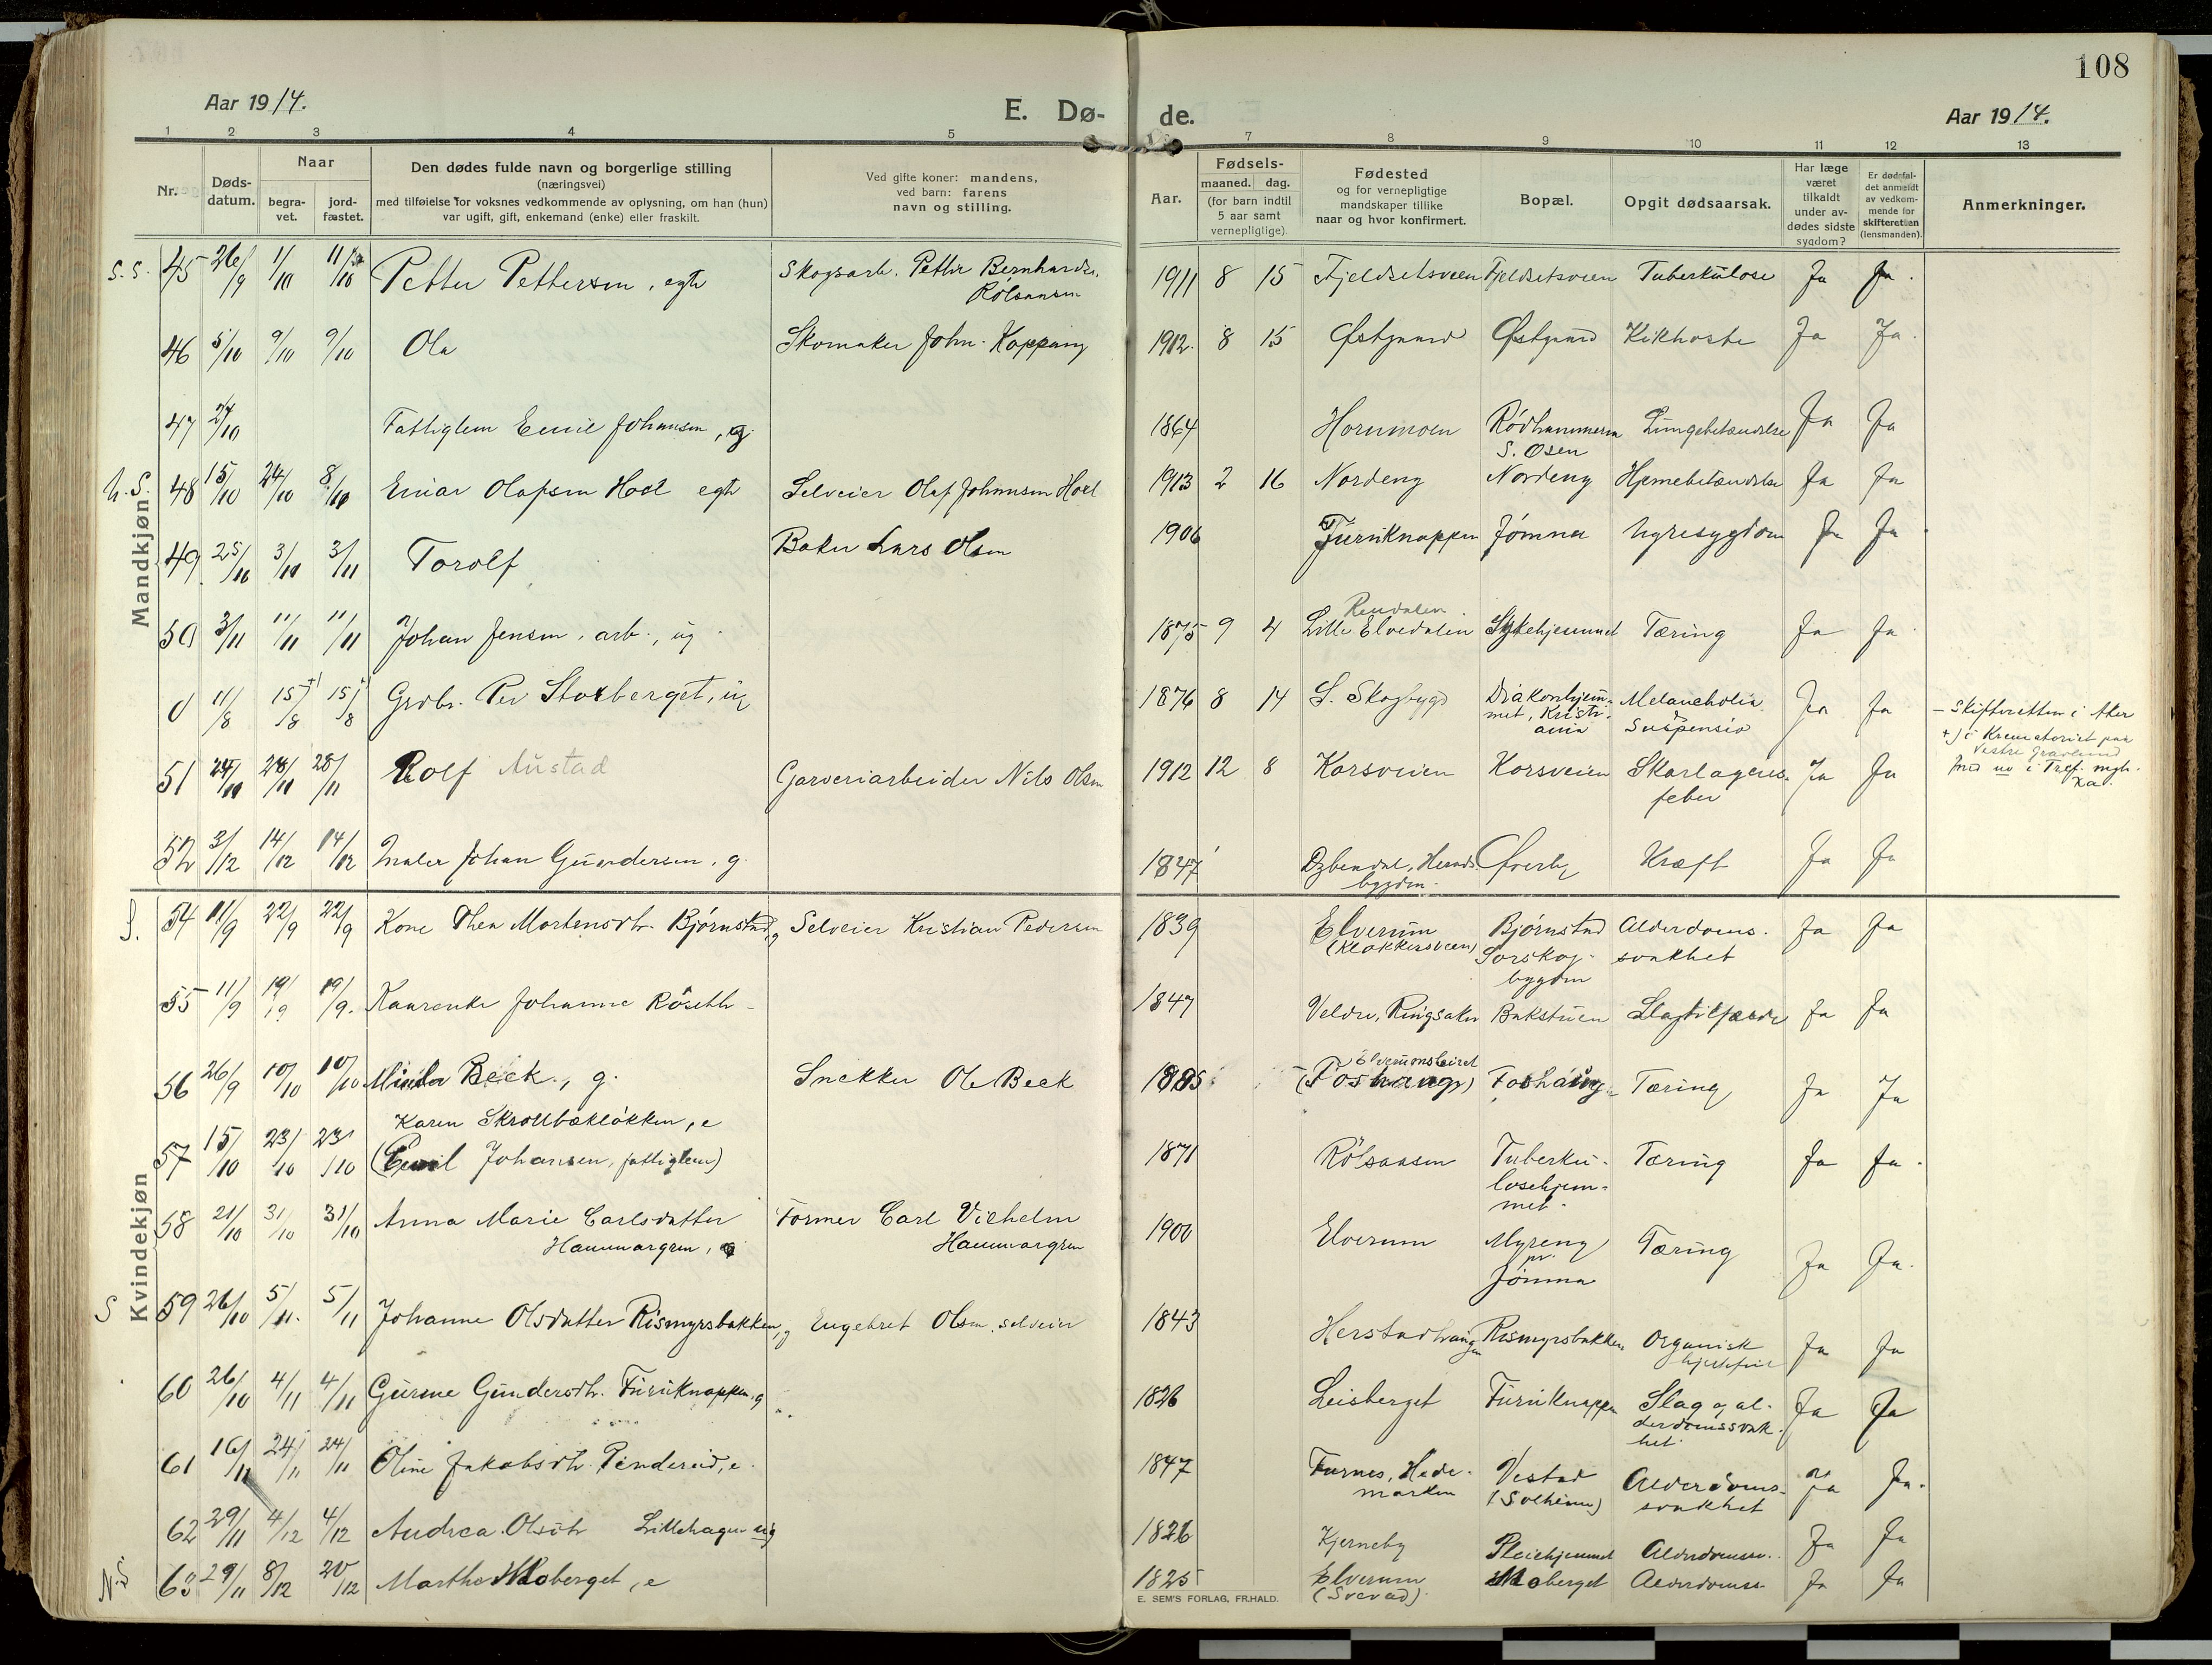 108
Aar 1914.
E. Dø-
de.
Aar 1914.
1 2 3 4 5 7 8 9 10 11 12 13
Nr.
Døds-
datum.
Naar
begra-
vet.
jord-
fæstet.
Den dødes fulde navn og borgerlige stilling
(næringsvei)
med tilføielse for voksnes vedkommende av oplysning, om han (hun)
var ugift, gift, enkemand (enke) eller fraskilt.
Ved gifte koner: mandens,
ved barn: farens
navn og stilling.
Aar.
Fødsels-
maaned. dag.
(for barn indtil
5 aar samt
vernepligtige).
Fødested
og for vernepligtige
mandskaper tillike
naar og hvor konfirmert.
Bopæl.
Opgit dødsaarsak.
Har læge
været
tilkaldt
under av-
dødes sidste
sygdom?
Er dødsfal-
det anmeldt
av vedkom-
mende for
skifteretten
(lensmanden).
Anmerkninger.
Mandkjøn
S.S. 45 26/9 1/10 11/10 Petter Pettersen, egte Skogsarb. Petter Bernhardsen Rölsaasen 1911 8 15 Fjeldsetsveen Fjeldsetsveen Tuberkulose Ja Ja.
46 5/10 9/10 9/10 Ola Skomaker John Koppang 1912. 8 15 Østgaard Østgaard Kikhoste Ja Ja.
47 Fattiglem Emil Johansen, g. 1864 Hornmoen S. Osen Lungebetændelse Ja Ja
48 15/10 24/10 8/10 Einar Olafsen Hoel egte Selveier Olaf Johannsen Hoel 1913 2 16 Nordeng Nordeng Hjernebetændelse Ja Ja
49 25/10 3/11 Torolf Baker Lars Olsen 1906 Furuknappen Jömna Nyresygdom Ja Ja
50 3/11 11/11 11/11 Johan Jensen, arb., ug 1875 9 4 Rendalen Lille Elvedalen Sykehjemmet Tæring Ja Ja
0 11/8 15/8 +) 15/8 Grdbr. Per Storberget, ug 1876 8 14 S. Skogbygd Diakonhjem-
met, Kristi-
ania Melancholia
Suspensio Ja Ja - Skifteretten i Aker
+) i Krematoriet paa
Vestre gravlund
51 28/11 Rolf Austad Garveriarbeider Nils Olsen 1912 12 8 Korsveien Korsveien Skarlagens-
feber Ja Ja
52 3/12 14/12 14/12 Maler Johan Gundersen, g. 1847 Heradsbygden Øverby Kræft Ja Ja
Kvindekjøn
S. 54 11/9 22/9 22/9 Kone Thea Mortensdtr. Bjørnstad, g Selveier Kristian Pedersen 1839 Elverum
(Klokkersveen) Bjørnstad
Sørskog-
bygden Alderdoms-
svakhet Ja Ja
55 11/9 19/9 19/9. Kaarenke Johanne Röseth 1847 Veldre, Ringsaker Bakstuen Slagtilfælde Ja Ja
56 26/9 10/10 10/10 Minda Beck., g. Snekker Ole Beck 1885 Elverumsleiret
(Foshaug) Foshaug Tæring Ja Ja
57 15/10 23/10 23/10 Karen Skrollbækløkken, e
(Emil Johansen, fattiglem) 1871 Rölsaasen Tuberku-
losehjem-
met. Tæring Ja Ja.
58 21/10 31/10 31/10 Anna Marie Carlsdatter
Hammargren, Former Carl Vilhelm
Hammargren 1900 Elverum Myreng
pr.
Jömna Tæring Ja Ja.
S 59 26/10 5/11. 5/11 Johanne Olsdatter Rismyrsbakken, g Engebret Olsen, selveier 1843 Herstadhaugen Rismyrsbakken Organisk
hjertefeil Ja Ja
60 26/10 4/11 4/11 Gurine Gundersdtr. Furuknappen, g 1826 Leisberget Furuknappen Slag og al-
derdomssvak-
het. Ja Ja
61 16/11 24/11 24/11 Oline Jakobsdtr. Pindereid, e. 1847 Furnes, Hede-
marken Vestad
(Solheim) Alderdoms-
svakhet Ja Ja.
62 29/11 4/12 4/12 Andrea Olsdtr Lillehagen ug 1826 Kjerneby Pleiehjemmet Alderdomssv.. Ja Ja
N.S 63 29/11 8/12 20/12 Marthe Moberget, e 1825 Elverum
(Svevad). Moberget Alderdomss. Ja Ja
E. SEM'S FORLAG, FR.HALD.